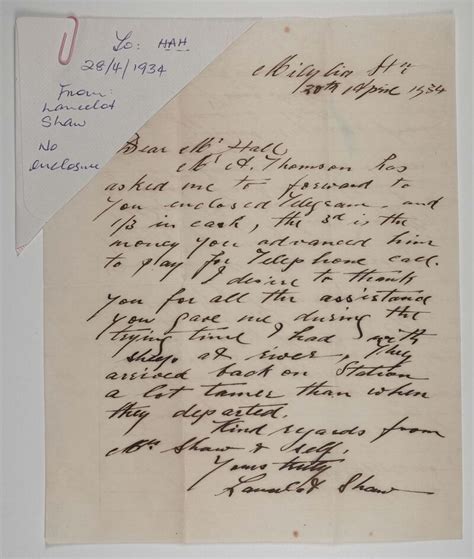 To: HAH
28/4/1934
From:
Lancelot
Shaw
No
enclosure
30th April 1934
Dear Mr Hall
Mr A. Thomson has
asked me to forward to
you enclosed Telegram. and
1/3 in cash, the 3d is the
money you advanced him
to pay for Telephone call.
I desire to thank
you for all the assistance
you gave me during the
trying time I had with
sheep at river, They
arrived back on Station
a lot tamer than when
they departed.
Kind regards from
Mrs Shaw & self.
Yours truly
Lancelot Shaw